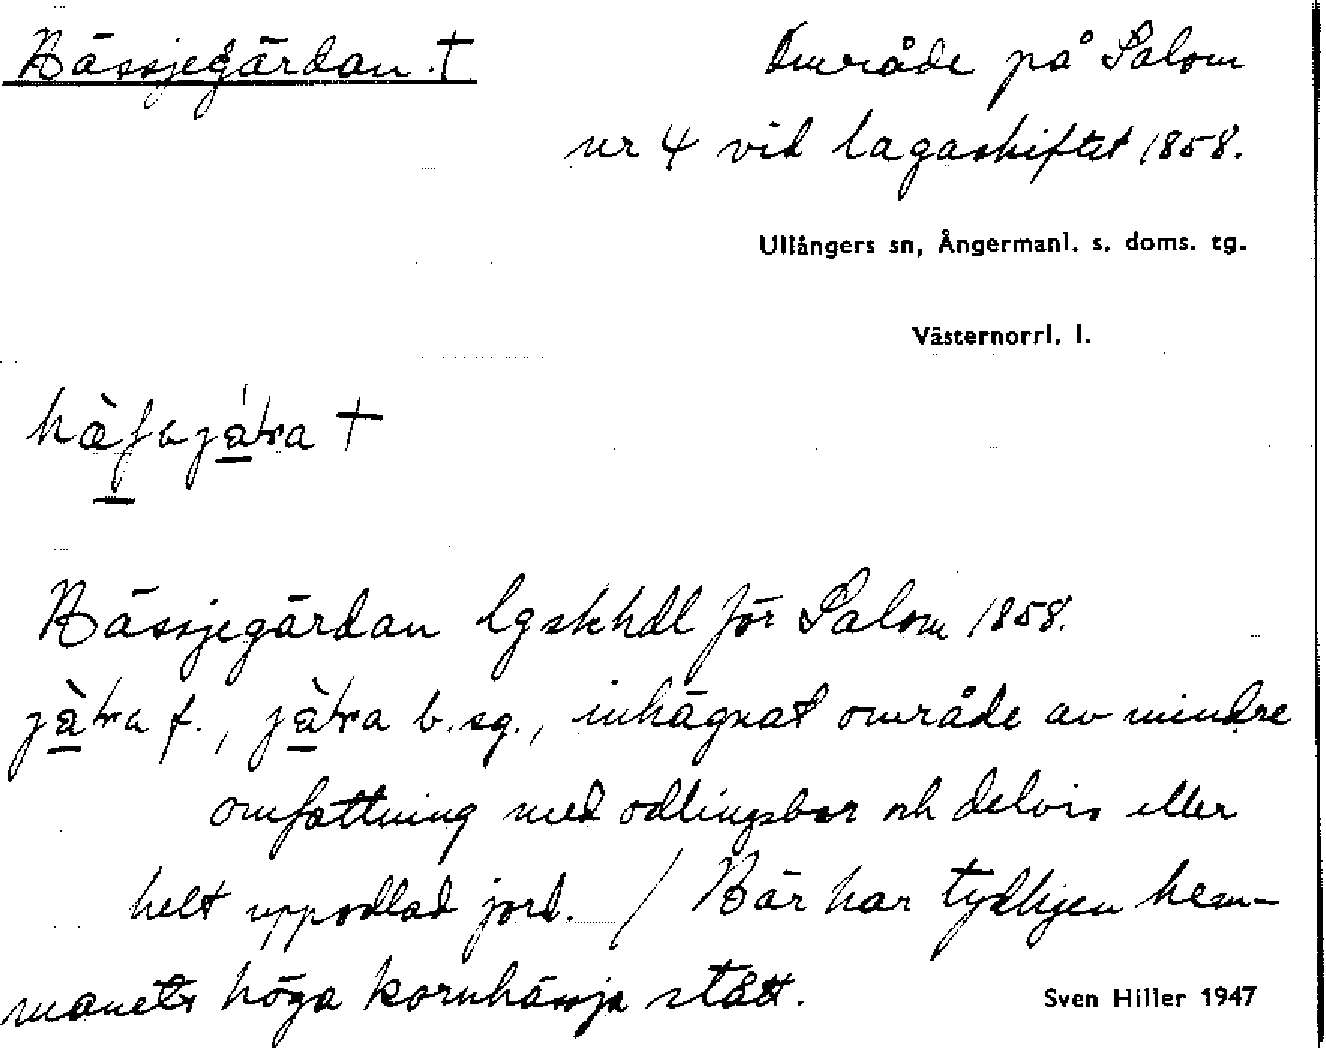 Hässjegärdan †
Område på Salom
nr 4 vid lagaskiftet 1858.
Ullångers sn, Ångermanl. s. doms. tg.
Västernorrl. l.
†
Hässjegärdan lgskhdl för Salom 1858.
f., b. sg., inhägnat område av mindre
omfattning med odlingsbar och delvis eller
helt uppodlad jord. / Här har tydligen hem-
manets höga kornhässja stått.
Sven Hiller 1947